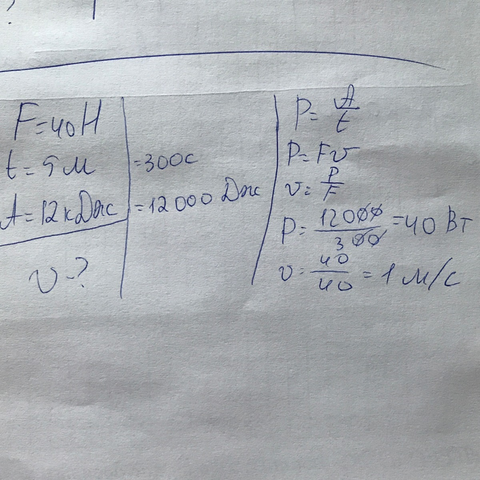 F=40H
t=5м
=300с
A=12кДж
=12000 Дж
v-?
P=A/t
P=Fv
v=P/F
P=12000/300=40 Вт
v=40/40=1 м/с